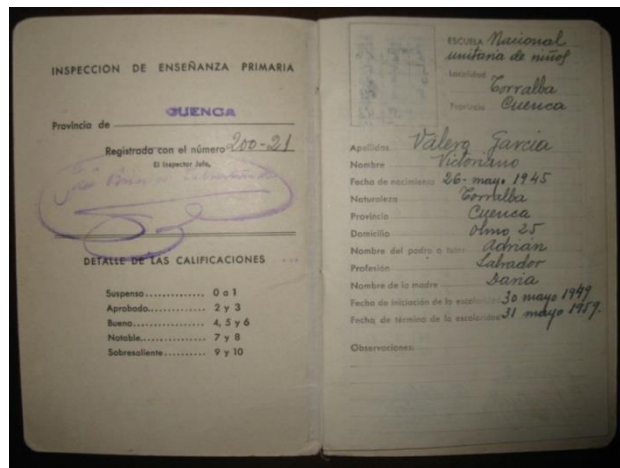 INSPECCION DE ENSEÑANZA PRIMARIA
CUENCA
Provincia de
Registrada con el número 200-21
El Inspector Jefe,
DETALLE DE LAS CALIFICACIONES
Suspenso.............. 0 a 1
Aprobado.............. 2 y 3
Bueno.............. 4, 5 y 6
Notable.............. 7 y 8
Sobresaliente.......... 9 y 10
ESCUELA Nacional
unitaria de niños
Localidad
Torralba
Provincia Cuenca
Apellidos Valero García
Nombre Victoriano
Fecha de nacimiento 26-mayo 1945
Naturaleza Torralba
Provincia Cuenca
Domicilio Olmo 25
Nombre del padre o tutor Adrián
Profesión Labrador
Nombre de la madre Daria
Fecha de iniciación de la escolaridad 30 mayo 1949
Fecha de término de la escolaridad 31 mayo 1959.
Observaciones: